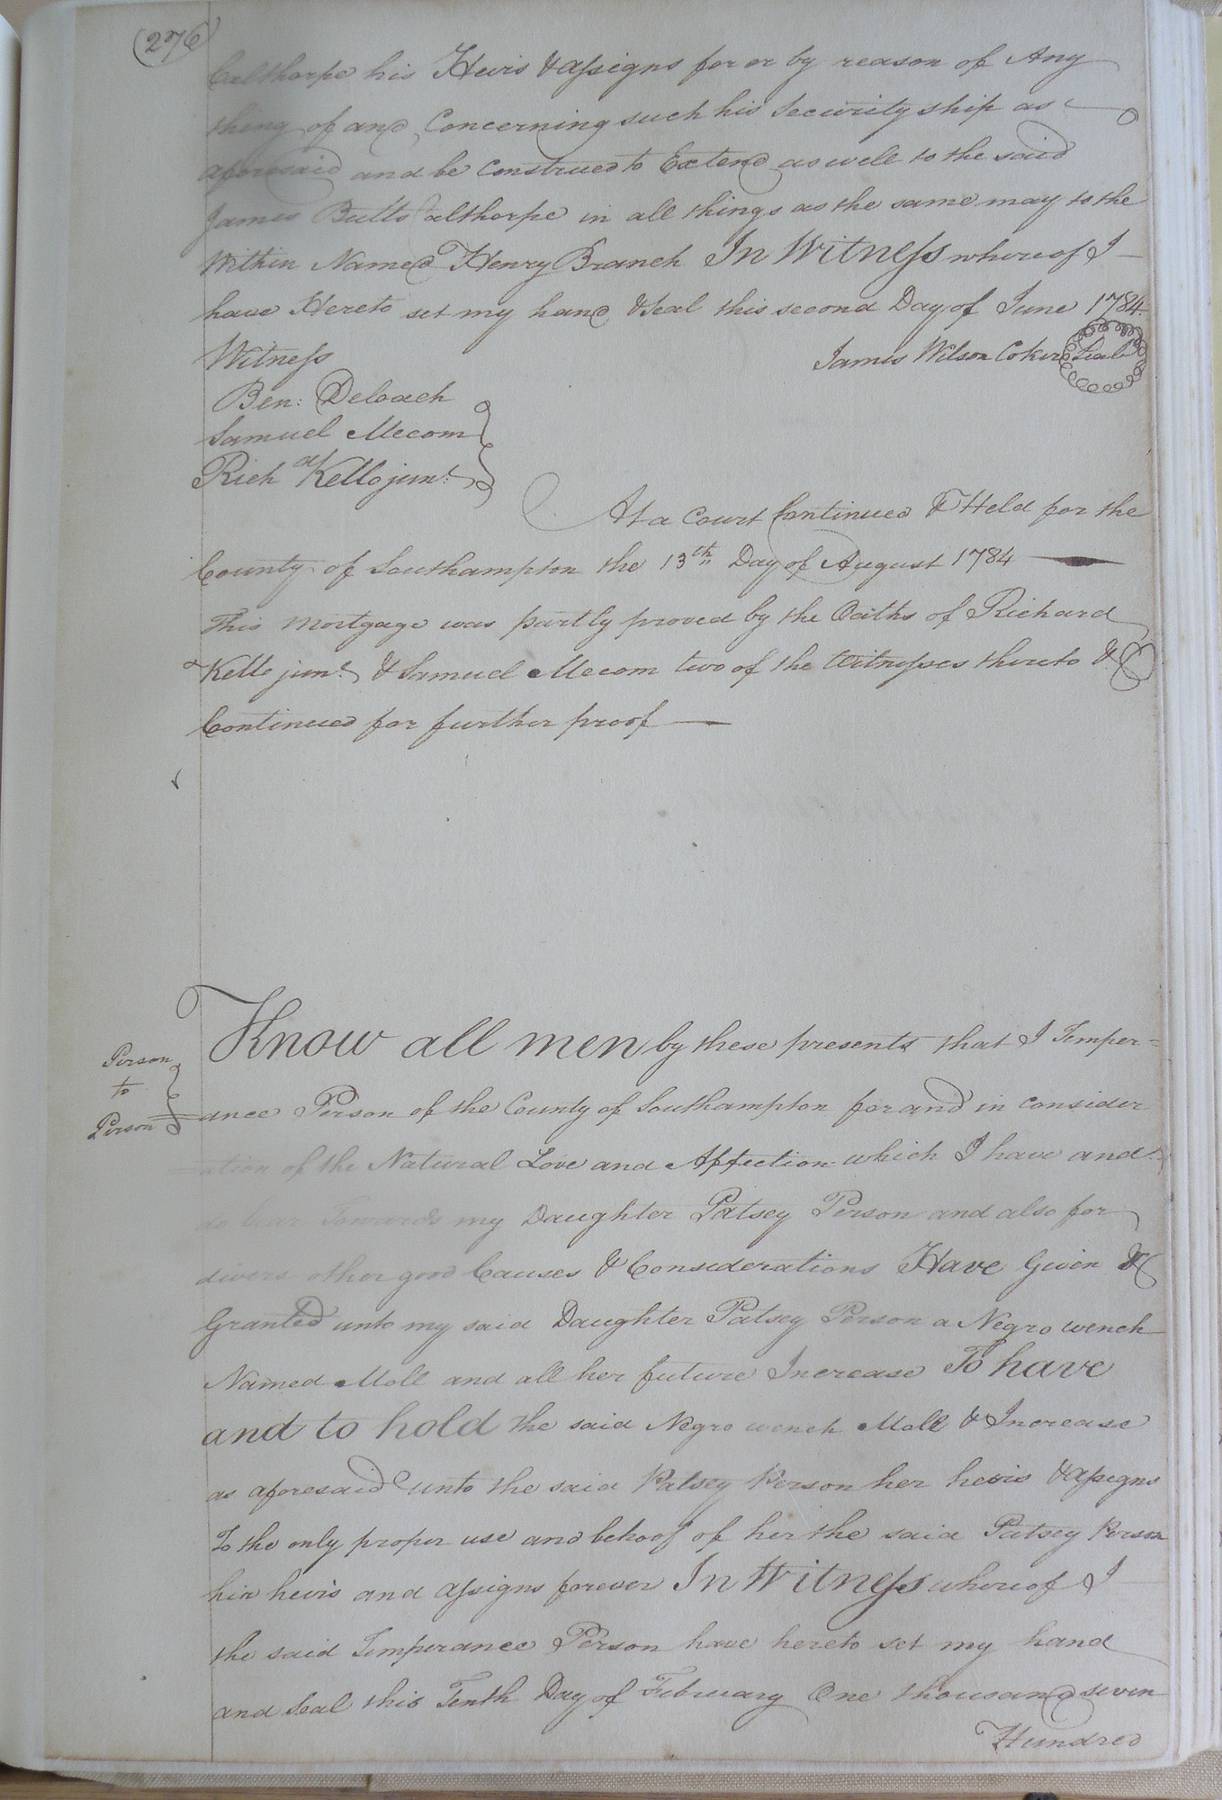 (276)
Calthorpe his Heirs & assigns for or by reason of Any
thing of and Concerning such his Security ship as
aforesaid and be Construed to Extend as well to the said
James Butts Calthorpe in all things as the same may to the
Within Named Henry Branch In Witness whereof I
have Hereto set my hand & Seal this second Day of June 1784.
Witness
James Wilson Coker Seal
Ben: Deloach
Samuel Mecom
Richd Kello junr.
At a Court Continued & Held for the
County of Southampton the 13th Day of August 1784
This Mortgage was partly proved by the Oaths of Richard
Kello junr. & Samuel Mecom two of the Witnesses thereto &
Continued for further proof
Person
to
Person
Know all men by these presents that I Temper=
ance Person of the County of Southampton for and in consider
ation of the Natural Love and Affection which I have and
do bear Towards my Daughter Patsey Person and also for
divers other good Causes & Considerations Have Given &
Granted unto my said Daughter Patsey Person a Negro wench
Named Moll and all her future Increase To have
and to hold the said Negro wench Moll & Increase
as aforesaid unto the said Patsey Person her heirs & assigns
To the only proper use and behoof of her the said Patsey Person
her heirs and assigns forever In Witness whereof I
the said Temperance Person have hereto set my hand
and Seal this Tenth Day of February One thousand seven
Hundred